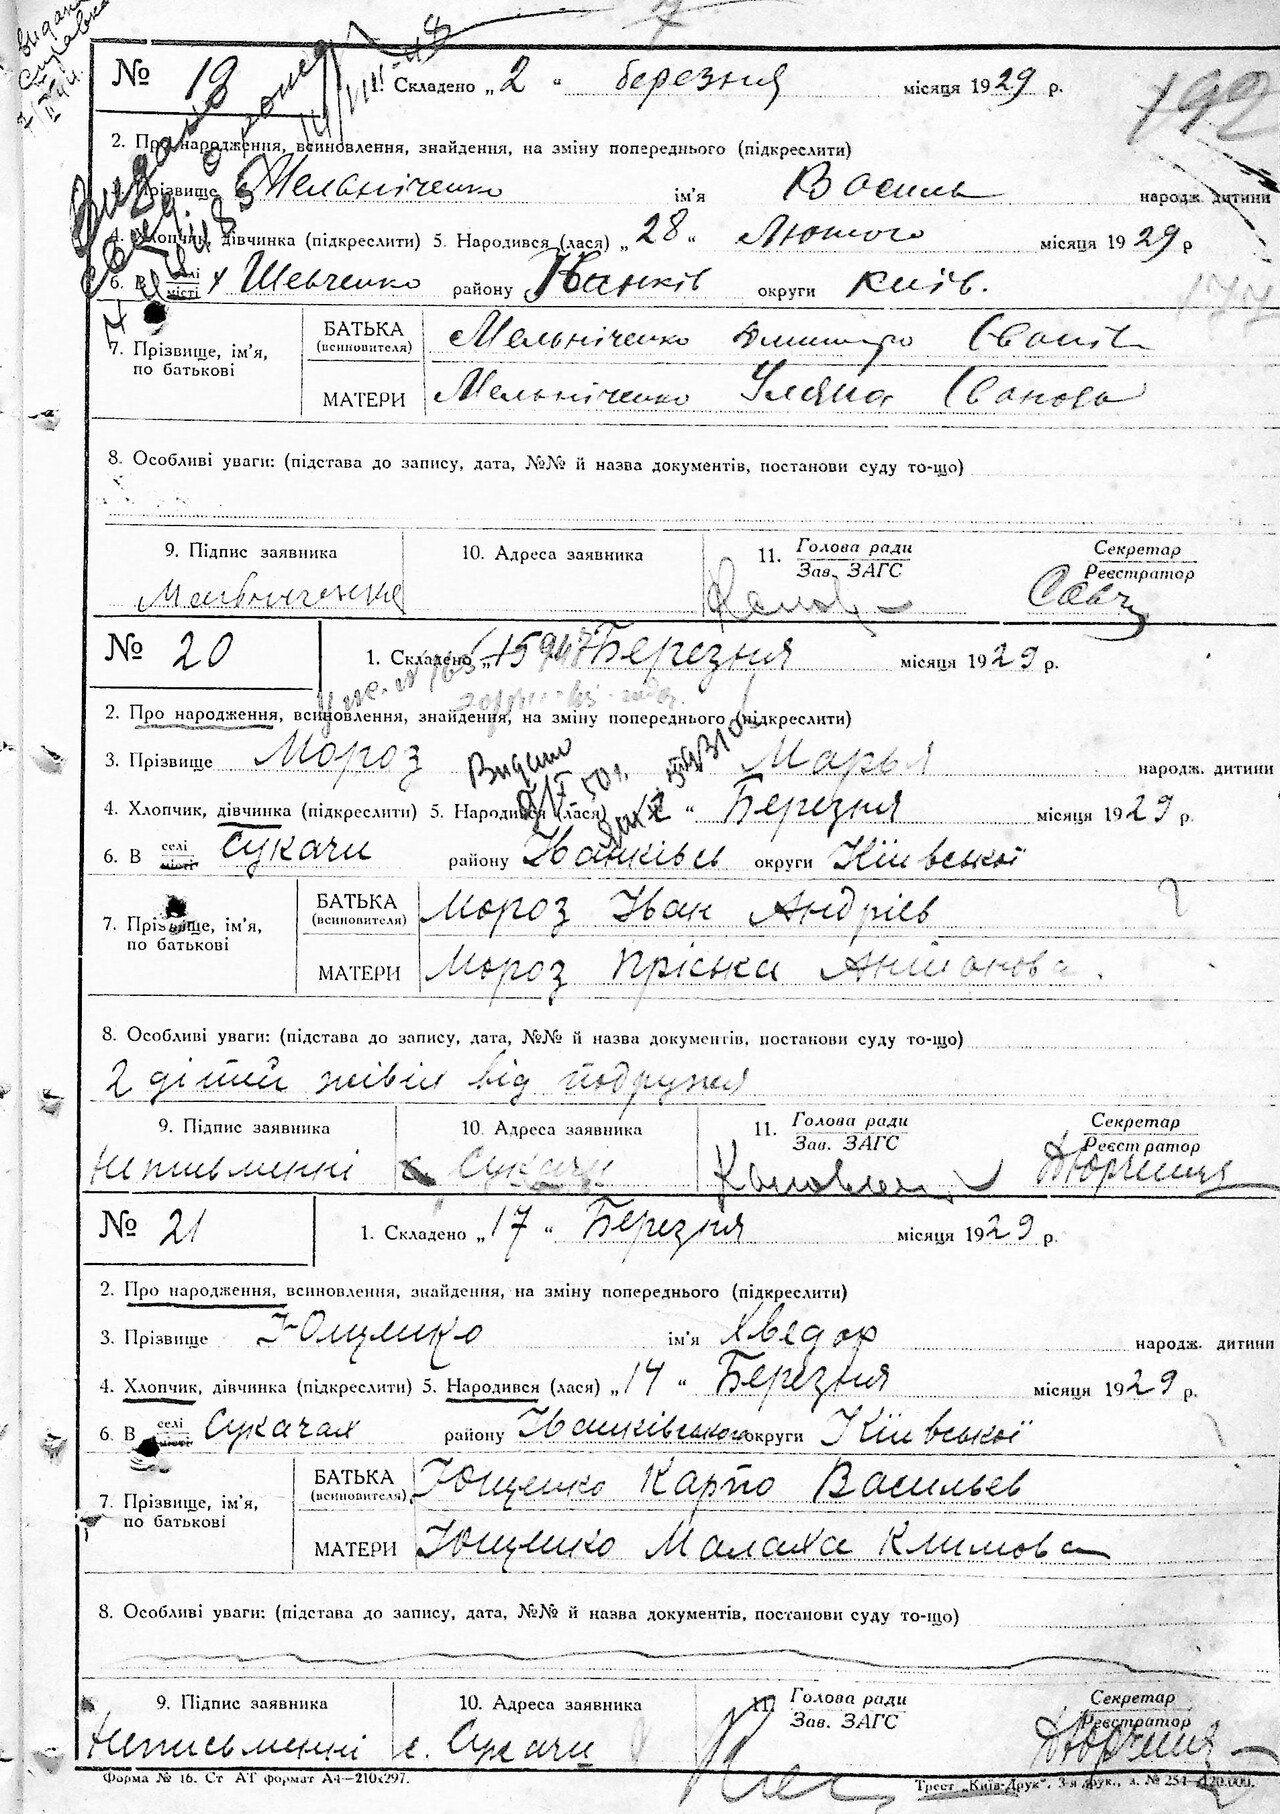 7
Видана
справка
№ 19 1. Складено „ 2 “ березня місяця 1929 р.
192
2. Про народження, всиновлення, знайдення, на зміну попереднього (підкреслити)
Видано
Прізвище Мельніченко ім'я Василь народж. дитини
4. Хлопчик, дівчинка (підкреслити) 5. Народився (лася) „ 28 “ Лютого місяця 1929 р
6. В селі місті х Шевченко району Іванків округи Київ.
177
7. Прізвище, ім'я, по батькові
БАТЬКА (всиновителя) Мельніченко Дмитро Іванів
МАТЕРИ Мельніченко Уляна Іванова
8. Особливі уваги: (підстава до запису, дата, №№ й назва документів, постанови суду то-що)
9. Підпис заявника 10. Адреса заявника 11. Голова ради Зав. ЗАГС Секретар Реєстратор
№ 20 1. Складено „ 15 Березня місяця 1929 р.
2. Про народження, всиновлення, знайдення, на зміну попереднього (підкреслити)
3. Прізвище Мороз Марья народж. дитини
Видано
4. Хлопчик, дівчинка (підкреслити) 5. Народився (лася) “ Березня місяця 1929 р.
6. В селі місті Сукачи району Іванківсь округи Київської
7. Прізвище, ім'я, по батькові
БАТЬКА (всиновителя) Мороз Іван Андрієв
МАТЕРИ Мороз Пріська Антонова.
8. Особливі уваги: (підстава до запису, дата, №№ й назва документів, постанови суду то-що)
2 дітей живіх від подружя
9. Підпис заявника 10. Адреса заявника 11. Голова ради Зав. ЗАГС Секретар Реєстратор
Неписьменні с Сукачи
№ 21 1. Складено „ 17 “ Березня місяця 1929 р.
2. Про народження, всиновлення, знайдення, на зміну попереднього (підкреслити)
3. Прізвище Ющенко ім'я Хведор народж. дитини
4. Хлопчик, дівчинка (підкреслити) 5. Народився (лася) „ 14 “ Березня місяця 1929 р.
6. В селі місті Сукачах району Іванківського округи Київської
7. Прізвище, ім'я, по батькові
БАТЬКА (всиновителя) Ющенко Карпо Васильев
МАТЕРИ Ющенко Малаха Климова
8. Особливі уваги: (підстава до запису, дата, №№ й назва документів, постанови суду то-що)
9. Підпис заявника 10. Адреса заявника 11. Голова ради Зав. ЗАГС Секретар Реєстратор
Неписьменні с. Сукачи
Форма № 16. Ст АТ формат А4—210х297. Трест „Київ-Друк“, 3-я друк., з. № 251—120.000.